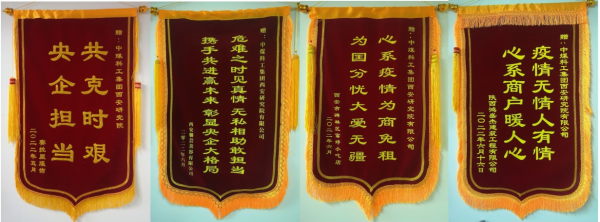 赠：中煤科工集团西安研究院
共克时艰
央企担当
二〇二二年五月
赠：中煤科工集团西安研究院有限公司
危难之时见真情 无私相助敢担当
携手共进赢未来 彰显央企大格局
二〇二二年六月
赠：中煤科工集团西安研究院有限公司
心系疫情为商免租
为国分忧大爱无疆
二〇二二年六月
赠：中煤科工集团西安研究院有限公司
疫情无情人有情
心系商户暖人心
陕西鸿嘉杰建筑工程有限公司
二〇二二年六月十六日